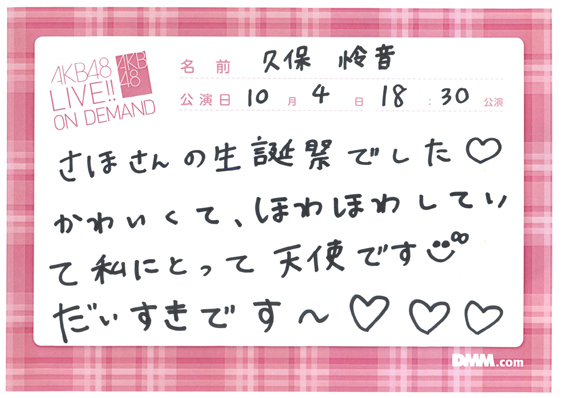 AKB48
LIVE!!
ON DEMAND
AKB
48
名前 久保 怜音
公演日 10月 4日 18:30公演
さほさんの生誕祭でした♡
かわいくて、ほわほわしてい
て私にとって天使です
だいすきです〜♡♡♡
DMM.com